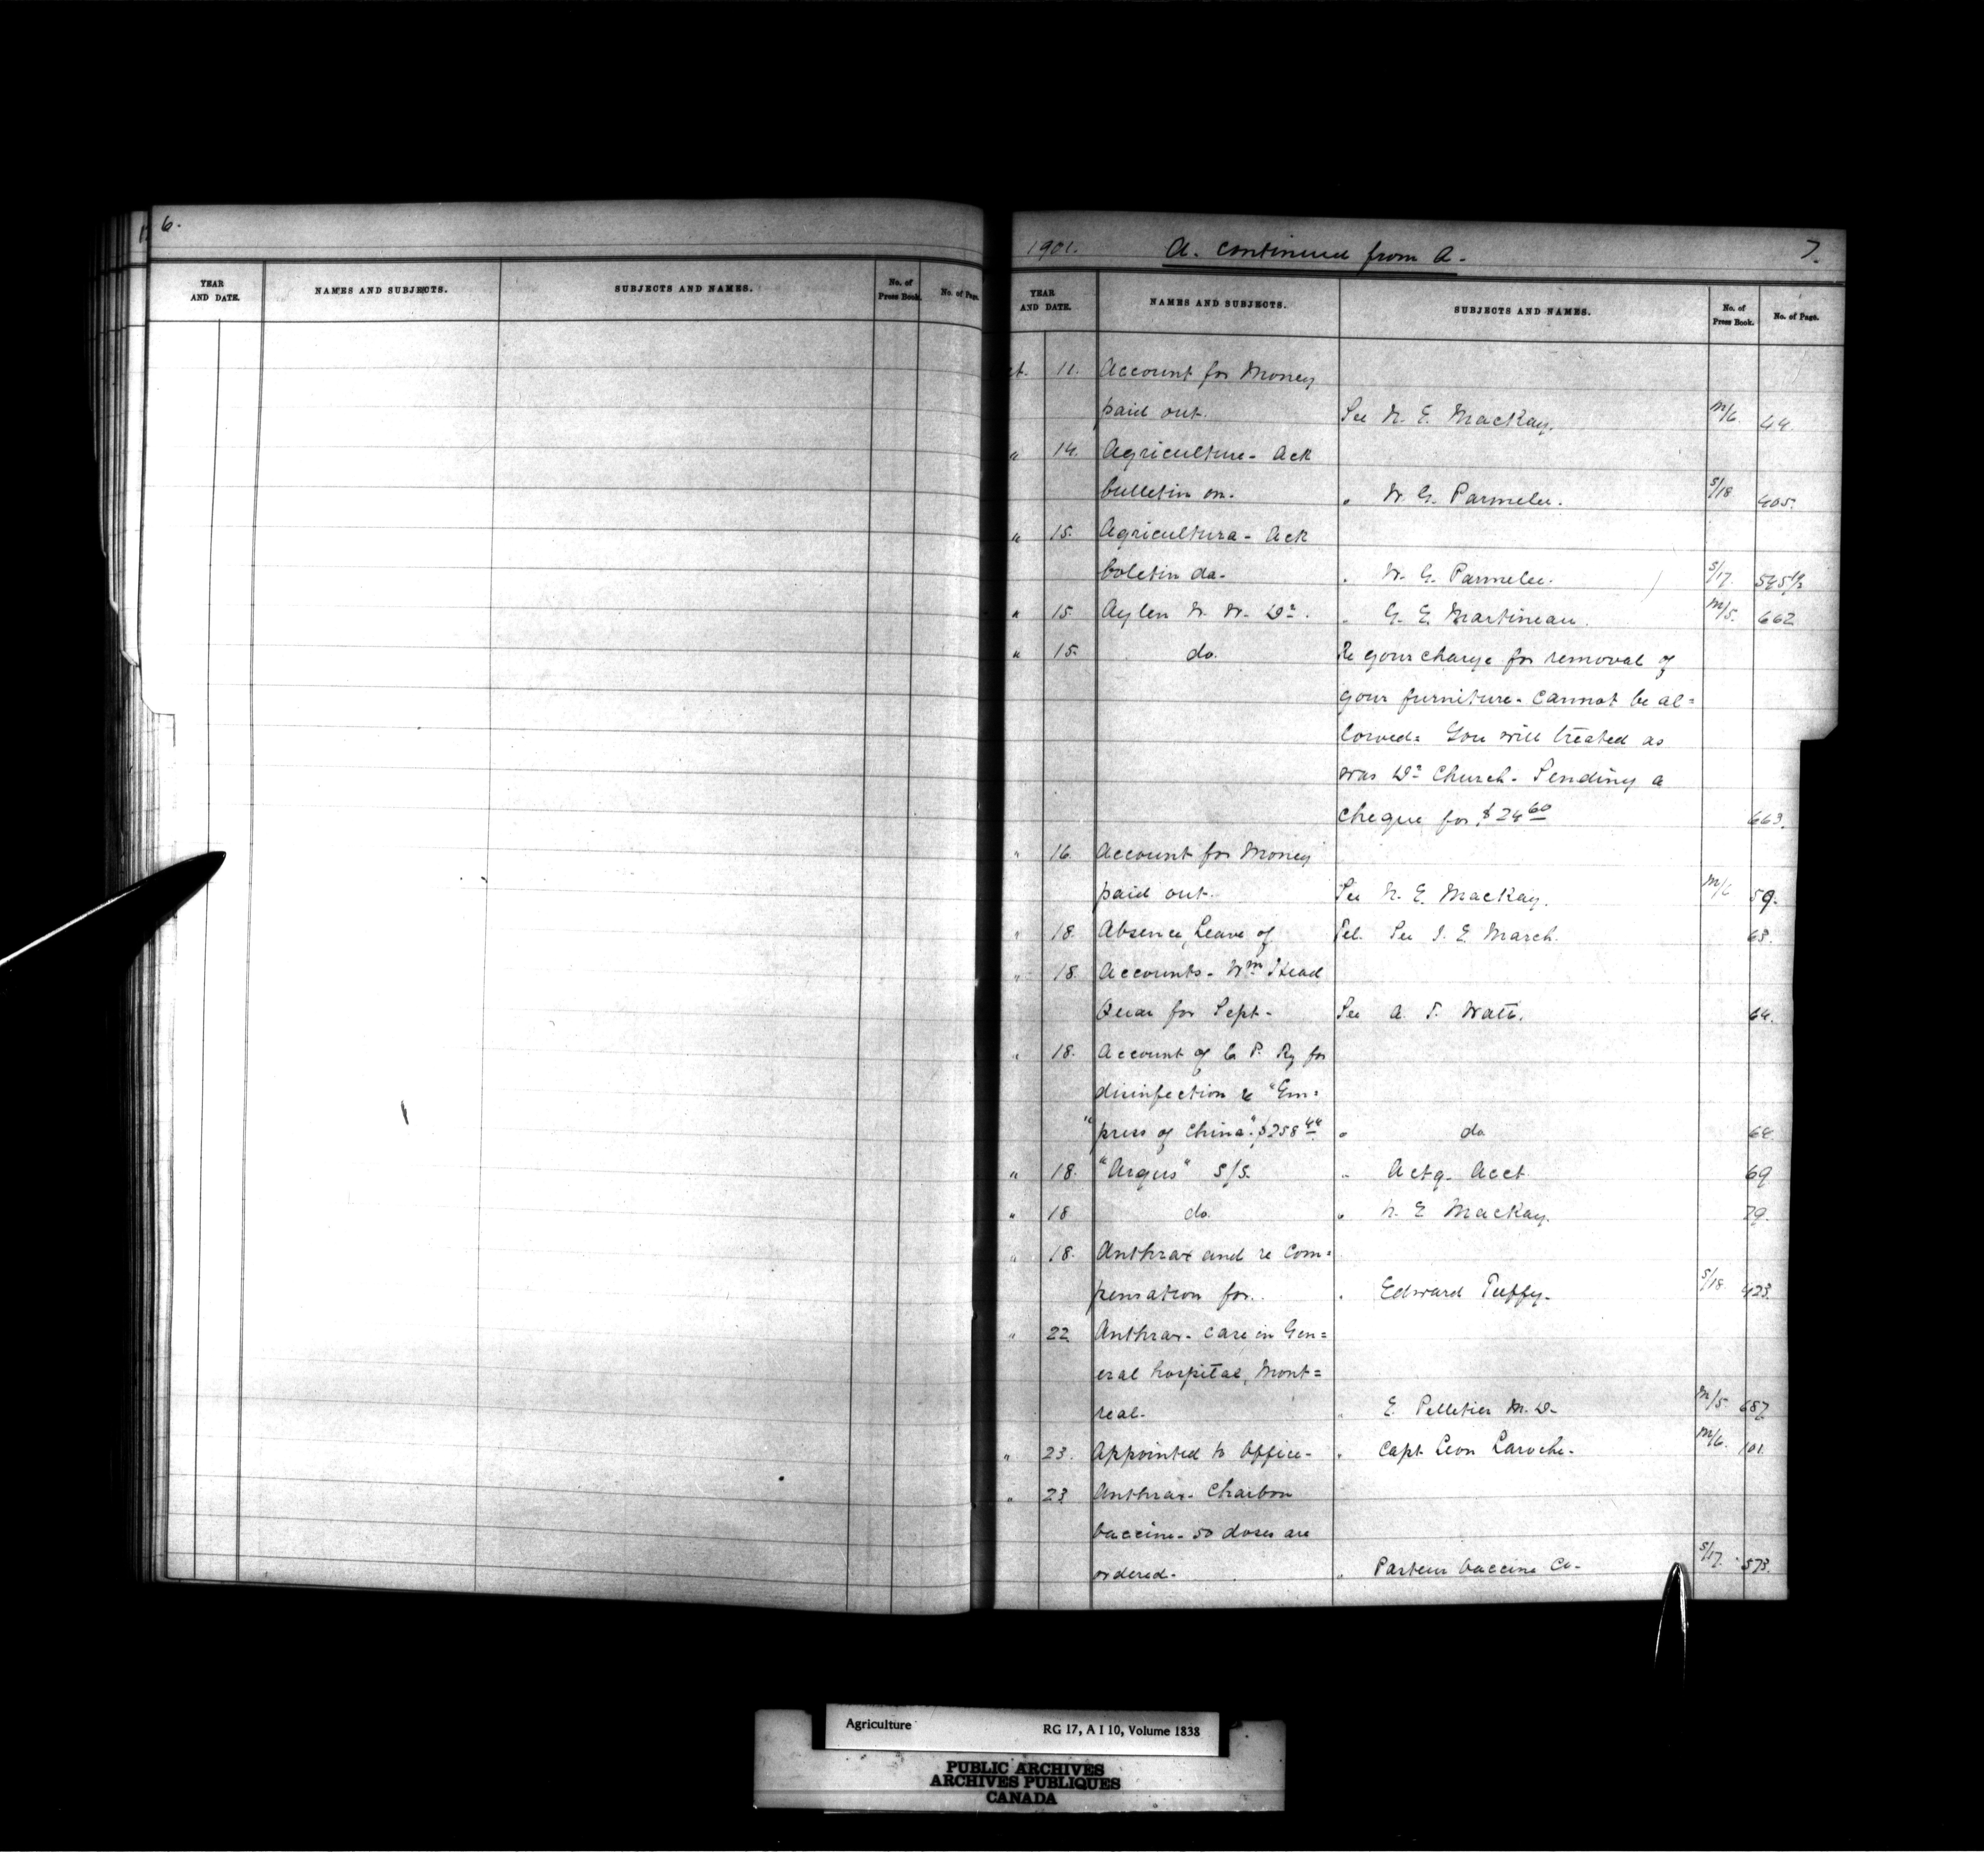 6.
YEAR AND DATE. NAMES AND SUBJECTS. SUBJECTS AND NAMES. No. of Press Book. No. of Page.
1901. A. continued from A. 7.
YEAR AND DATE. NAMES AND SUBJECTS. SUBJECTS AND NAMES. No. of Press Book. No. of Page.
ct. 11. Account for Money
paid out. See N. E. MacKay. M/6 44.
" 14. Agriculture - Ack
bulletin on. " W. G. Parmelee. S/18 405.
" 15. Agricultura - Ack
boletin da. " W. G. Parmelee. S/17. 545½
" 15. Aylen W. W. Dr. " G. E. Martineau. M/5. 662
" 15. do. Re your charge for removal of
your furniture - cannot be al=
lowed = You will treated as
was Dr. Church - Sending a
cheque for $24 60 663.
" 16. Account for Money
paid out. See N. E. MacKay. M/6 59.
" 18. Absence, Leave of Tel. See J. E. March. 63.
" 18. Accounts - Wm Head
Quar for Sept - See A. T. Watt. 64.
" 18. Account of C P. Ry for
disinfection re "Em=
"press of China". $258 44 " do 68
" 18. "Argus" S/S. " Actg. Acct 69
" 18 do. " N. E MacKay. 79.
" 18. Anthrax and re Com=
pensation for. " Edward Tuffy. S/18. 423.
" 22 Anthrax - care in Gen=
eral hospital, Mont=
real. " E. Pelletier M. D. M/5 687
" 23. Appointed to office - " Capt. Leon Laroche. M/6. 101.
" 23 Anthrax - Charbon "
vaccine - 50 doses are
ordered. " Pasteur Vaccine Co. S/17. 573.
Agriculture RG 17, A I 10, Volume 1838
PUBLIC ARCHIVES
ARCHIVES PUBLIQUES
CANADA